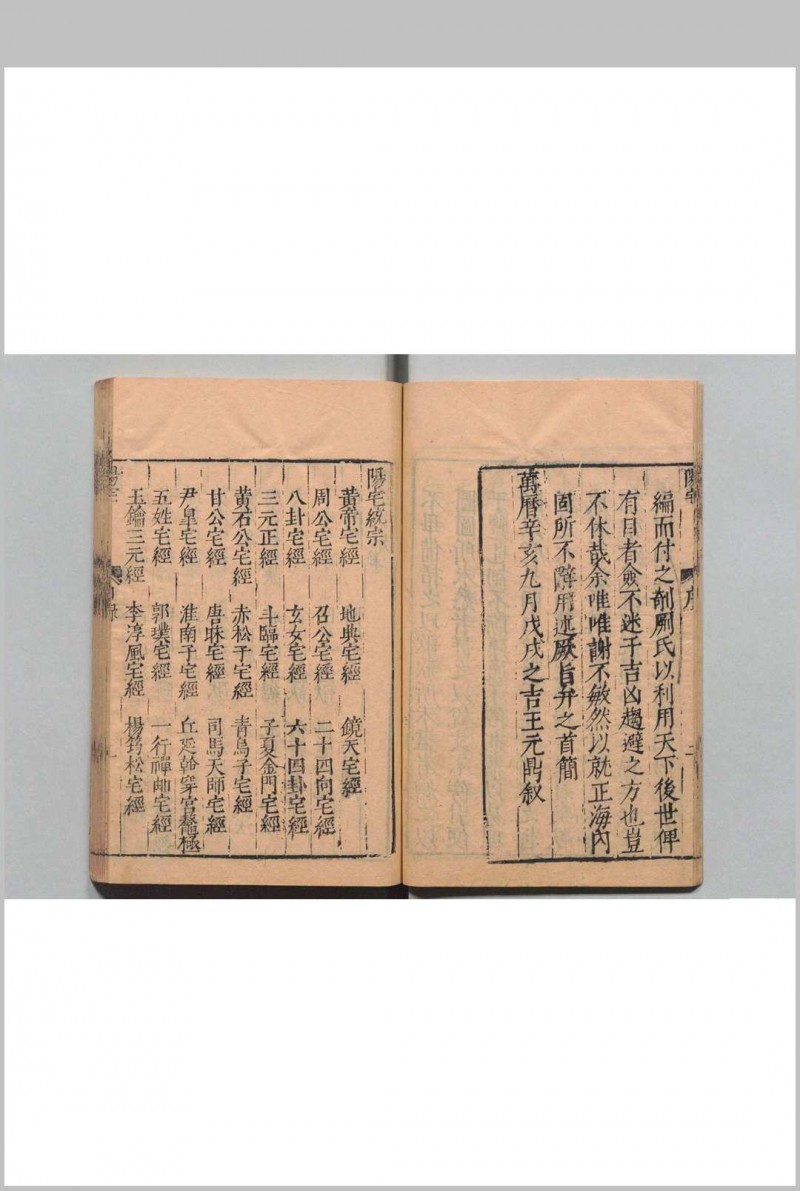 陽宅
序
二
編而付之剞劂氏以利用天下後世俾
有目者僉不迷于吉凶趨避之方也豈
不休哉余唯唯謝不敏然以就正海內
固所不辭用述厥旨弁之首簡
萬曆辛亥九月戊戌之吉王元鼎叙
陽宅統宗
黃帝宅經 地典宅經 鏡天宅經
周公宅經 召公宅經 二十四向宅經
八卦宅經 玄女宅經 六十四卦宅經
三元正經 斗臨宅經 子夏金門宅經
黃石公宅經 赤松子宅經 青烏子宅經
甘公宅經 唐昧宅經 司馬天師宅經
尹皇宅經 淮南子宅經 丘延翰穿宮鰲極
五姓宅經 郭璞宅經 一行禪師宅經
玉鑰三元經 李淳風宅經 楊筠松宅經
目錄
一